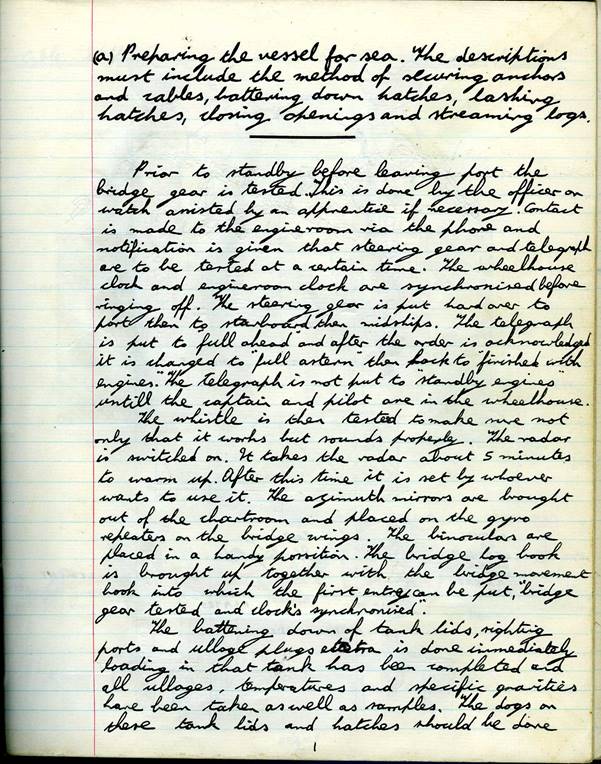 (a) Preparing the vessel for sea. The descriptions
must include the method of securing anchors
and cables, battering down hatches, lashing
hatches, closing openings and streaming logs.
Prior to standby before leaving port the
bridge gear is tested. This is done by the officer on
watch assisted by an apprentice if necessary. Contact
is made to the engineroom via the phone and
notification is given that steering gear and telegraph
are to be tested at a certain time. The wheelhouse
clock and engineroom clock are synchronised before
ringing off. The steering gear is put hard over to
port then to starboard then midships. The telegraph
is put to full ahead and after the order is acknowledged
it is changed to "full astern" then back to "finished with
engines". The telegraph is not put to "standby engines"
untill the captain and pilot are in the wheelhouse.
The whistle is then tested to make sure not
only that it works but sounds properly. The radar
is switched on. It takes the radar about 5 minutes
to warm up. After this time it is set by whoever
wants to use it. The azimuth mirrors are brought
out of the chartroom and placed on the gyro
repeaters on the bridge wings. The binoculars are
placed in a handy possition. The bridge log book
is brought up together with the bridge movement
book into which the first entry can be put, "bridge
gear tested and clock's synchronised".
The battening down of tank lids, sighting
ports and ullage plugs etcetra is done immediately
loading in that tank has been completed and
all ullages, temperatures and specific gravities
have been taken as well as samples. The dogs on
these tank lids and hatches should be done
1